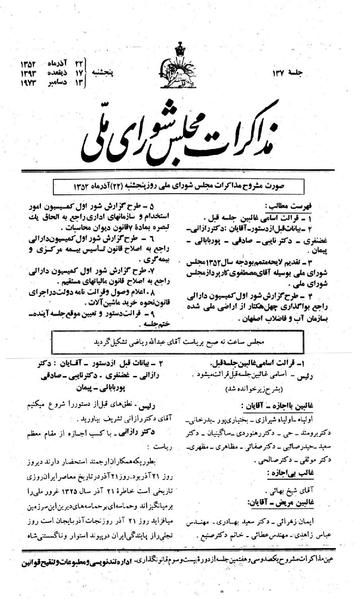 جلسهٔ ۱۳۷
پنجشنبه
۲۲ آذرماه ۱۳۵۲
۱۷ ذیقعده ۱۳۹۳
۱۳ دسامبر ۱۹۷۳
مذاکرات مجلس شورای ملی
صورت مشروح مذاکرات مجلس شورای ملی روز پنجشنبه (۲۲) آذرماه ۱۳۵۲
فهرست مطالب :
۱ - قرائت اسامی غائبین جلسه قبل .
۲ - بیانات قبل ازدستور - آقایان : دکتر رازانی -
غضنفری - دکتر نایبی - صادقی - پوربابائی -
پیمان .
۳ - تقدیم لایحه متمم بودجه سال ۱۳۵۲ مجلس
شورای ملی بوسیله آقای مصطفوی کارپرداز مجلس
شورای ملی .
۴ - طرح گزارش شور اول کمیسیون دارائی
راجع بواگذاری چهل هکتار از اراضی ملی شده
بسازمان آب و فاضلاب اصفهان .
۵ - طرح گزارش شور اول کمیسیون امور
استخدام و سازمانهای اداری راجع به الحاق یک
تبصره بمادهٔ ۷ قانون دیوان محاسبات .
۶ - طرح گزارش شور اول کمیسیون دارائی
راجع به اصلاح قانون تاسیس بیمه مرکزی و
بیمه گری .
۷ - طرح گزارش شور اول کمیسیون دارائی
راجع به اصلاح قانون مالیاتهای مستقیم .
۸ - اعلام وصول وقرائت نامه دولت دراجرای
قانون نحوه خرید ماشین آلات .
۹ - قرائت دستور و تعیین موقع جلسه آینده -
ختم جلسه .
مجلس ساعت نه صبح بریاست آقای عبدالله ریاضی تشکیل گردید
۱ - قرائت اسامی غائبین جلسه قبل .
رئیس - اسامی غائبین جلسه قبل قرائت میشود .
(بشرح زیر خوانده شد)
غائبین با اجازه - آقایان :
اولیاء - اولیاء شیرازی - بختیاری پور - بیدرخانی -
دکتر برومند - حی - دکتر رهنوردی - ساگینیان - دکتر
سعید - حیدر صائبی - دکتر صفائی - مظاهری - مظهری -
دکتر موثقی - دکتر صالحی .
غائب بی اجازه :
آقای شیخ بهائی .
غائبین مریض - آقایان :
ایمان زهرائی - دکتر سعید بهادری - مهندس
عباس زاهدی - مهندس عطائی - خانم دکتر صنیع .
۲ - بیانات قبل ازدستور - آقایان : دکتر
رازانی - غضنفری - دکتر نایبی - صادقی
پوربابائی - پیمان
رئیس - نطق‌های قبل از دستور را شروع میکنیم
آقای دکتر رازانی تشریف بیاورید .
دکتر رازانی - با کسب اجازه از مقام معظم
ریاست :
بطوریکه همکاران ارجمند استحضار دارند دیروز
روز ۲۱ آذر بود . روز ۲۱ آذر در تاریخ معاصر ایران روزی
تاریخی است خاطرهٔ ۲۱ آذر سال ۱۳۲۵ غرور ملی را
برمیانگیزاند و حماسه‌های دیرین این سرزمین
میافزاید روز ۲۱ آذر روز نجات آذربایجان است روز
تجلی راز پایندگی ایران دیروز استوار و ناگسستنی شاه
عین مذاکرات مشروح یکصد وسی و هفتمین جلسه از دورهٔ بیست و سوم قانونگذاری .
اداره تند نویسی و مطبوعات و تنقیح قوانین